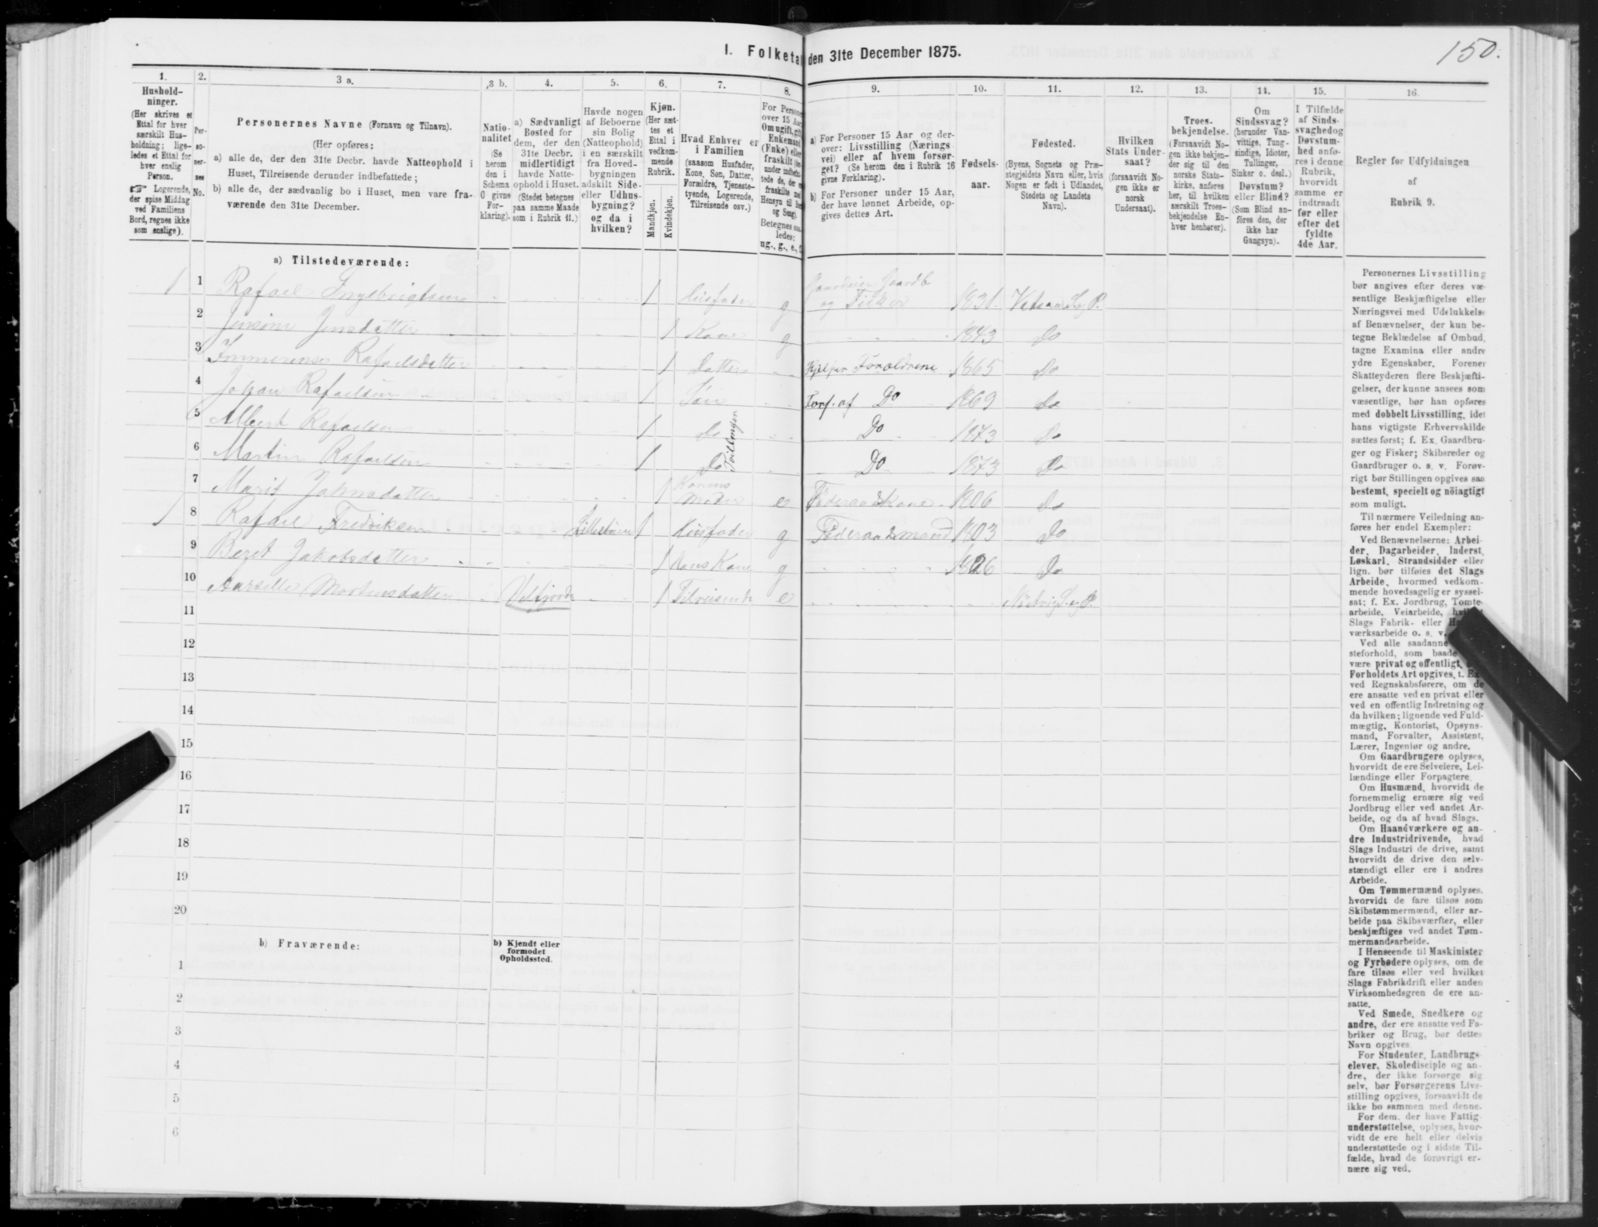 I. Folketal den 31te December 1875.
150.
1.
Hushold-
ninger.
(Her skrives et
Ettal for hver
særskilt Hus-
holdning; lige-
ledes et Ettal for
hver enslig
Person.
Logerende,
der spise Middag
ved Familiens
Bord, regnes ikke
som enslige).
2.
Per-
so-
ner-
nes
No.
3 a.
Personernes Navne (Fornavn og Tilnavn).
(Her opføres:
a) alle de, der den 31te Decbr. havde Natteophold i
Huset, Tilreisende derunder indbefattede;
b) alle de, der sædvanlig bo i Huset, men vare fra-
værende den 31te December.
3 b.
Natio-
nalitet
(Se
herom
den i
Schema
C givne
For-
klaring).
4.
a) Sædvanligt
Bosted for
dem, der den
31te Decbr.
midlertidigt
havde Natte-
ophold i Huset.
(Stedet betegnes
paa samme Maade
som i Rubrik 11.)
5.
Havde nogen
af Beboerne
sin Bolig
(Natteophold)
i en særskilt
fra Hoved-
bygningen
adskilt Side-
eller Udhus-
bygning?
og da i
hvilken?
6.
Kjøn.
(Her sæt-
tes et
Ettal i
vedkom-
mende
Rubrik.
Mandkjøn.
Kvindekjøn.
7.
Hvad Enhver er
i Familien
(saasom Husfader,
Kone, Søn, Datter,
Forældre, Tjeneste-
tyende, Logerende,
Tilreisende osv.)
8.
For Personer
over 15 Aar:
Om ugift, gift,
Enkemand
(Enke) eller
fraskilt
ug., g., e., f.
9.
a) For Personer 15 Aar og der-
over: Livsstilling (Nærings-
vei) eller af hvem forsør-
get? (Se herom den i Rubrik 16
givne Forklaring).
b) For Personer under 15 Aar,
der have lønnet Arbeide, op-
gives dettes Art.
10.
Fødsels-
aar.
11.
Fødested.
(Byens, Sognets og Præ-
stegjeldets Navn eller, hvis
Nogen er født i Udlandet,
Stedets og Landets
Navn).
12.
Hvilken
Stats Under-
saat?
(forsaavidt No-
gen ikke er
norsk
Undersaat).
13.
Troes-
bekjendelse.
(Forsaavidt No-
gen ikke bekjen-
der sig til den
norske Stats-
kirke, anføres
her, til hvilken
særskilt Troes-
bekjendelse En-
hver henhører).
14.
Om
Sindssvag?
(herunder Van-
vittige, Tung-
sindige, Idioter,
Tullinger,
Sinker o. desl.)
Døvstum?
eller Blind?
(Som Blind an-
føres den, der
ikke har
Gangsyn).
15.
I Tilfælde
af Sinds-
svaghed og
Døvstum-
hed anfø-
res i denne
Rubrik,
hvorvidt
samme er
indtraadt
før eller
efter det
fyldte
4de Aar.
16.
Regler for Udfyldningen
af
Rubrik 9.
a) Tilstedeværende:
1 1 Rafael Ingebrigtsen 1 Husfader g Gaardbr og Fisker 1831. L. P.
2 Jensine Jensdatter 1 Kone g 1843 Do
3 Rafaelsdatter 1 Datter Hjelper Forældrene 1865 Do
4 Johan Rafaelsen 1 Søn Forf. af Do 1869 Do
5 Albert Rafaelsen 1 Do Tvillinger Do 1873 Do
6 Martin Rafaelsen 1 Do Do 1873 Do
7 Marit Johnsdatter 1 Konens Moder e Føderaadskone 1806 Do
1 8 Rafael Fredriksen 1 Husfader g Føderaadsmand 1803 Do
9 Beret Jakobsdatter 1 Hans Kone g Do
10 Mortensdatter Velfjord 1 Tilreisende e
11
12
13
14
15
16
17
18
19
20
b) Fraværende:
b) Kjendt eller
formodet
Opholdssted.
1
2
3
4
5
6
Personernes Livsstilling
bør angives efter deres væ-
sentlige Beskjæftigelse eller
Næringsvei med Udelukkelse
af Benævnelser, der kun be-
tegne Beklædelse af Ombud,
tagne Examina eller andre
ydre Egenskaber. Forener
Skatteyderen flere Beskjæfti-
gelser, der kunne ansees som
væsentlige, bør han opføres
med dobbelt Livsstilling, idet
hans vigtigste Erhvervskilde
sættes først; f. Ex. Gaardbru-
ger og Fisker; Skibsreder og
Gaardbruger o. s. v. Forøv-
rigt bør Stillingen opgives saa
bestemt, specielt og nöiagtigt
som muligt.
Til nærmere Veiledning an-
føres her endel Exempler:
Ved Benævnelserne: Arbei-
der, Dagarbeider, Inderst,
Løskarl, Strandsidder eller
lign. bør tilføies det Slags
Arbeide, hvormed vedkom-
mende hovedsagelig er syssel-
sat; f. Ex. Jordbrug, Tomte-
arbeide, Veiarbeide, hvilket
Slags Fabrik- eller
værksarbeide o. s. v.
Ved alle saadanne
steforhold, som baade
være privat og offentligt,
Forholdets Art opgives, t. Ex.
ved Regnskabsførere, om de
ere ansatte ved en privat eller
ved en offentlig Indretning og
da hvilken; lignende ved Fuld-
mægtig, Kontorist, Opsyns-
mand, Forvalter, Assistent,
Lærer, Ingeniør og andre.
Om Gaardbrugere oplyses,
hvorvidt de ere Selveiere, Lei-
lændinge eller Forpagtere.
Om Husmænd, hvorvidt de
fornemmelig ernære sig ved
Jordbrug eller ved andet Ar-
beide, og da af hvad Slags.
Om Haandværkere og an-
dre Industridrivende, hvad
Slags Industri de drive, samt
hvorvidt de drive den selv-
stændigt eller ere i andres
Arbeide.
Om Tømmermænd oplyses,
hvorvidt de fare tilsøs som
Skibstømmermænd, eller ar-
beide paa Skibsværfter, eller
beskjæftiges ved andet Tøm-
mermandsarbeide.
I Henseende til Maskinister
og Fyrbødere oplyses, om de
fare tilsøs eller ved hvilket
Slags Fabrikdrift eller anden
Virksomhedsgren de ere an-
satte.
Ved Smede, Snedkere og
andre, der ere ansatte ved Fa-
briker og Brug, bør dettes
Navn opgives.
For Studenter, Landbrugs-
elever, Skoledisciple og an-
dre, der ikke forsørge sig
selv, bør Forsørgerens Livs-
stilling opgives, forsaavidt de
ikke bo sammen med denne.
For dem, der have Fattig-
understøttelse, oplyses, hvor-
vidt de ere helt eller delvis
understøttede og i sidste Til-
fælde, hvad de forøvrigt er-
nære sig ved.